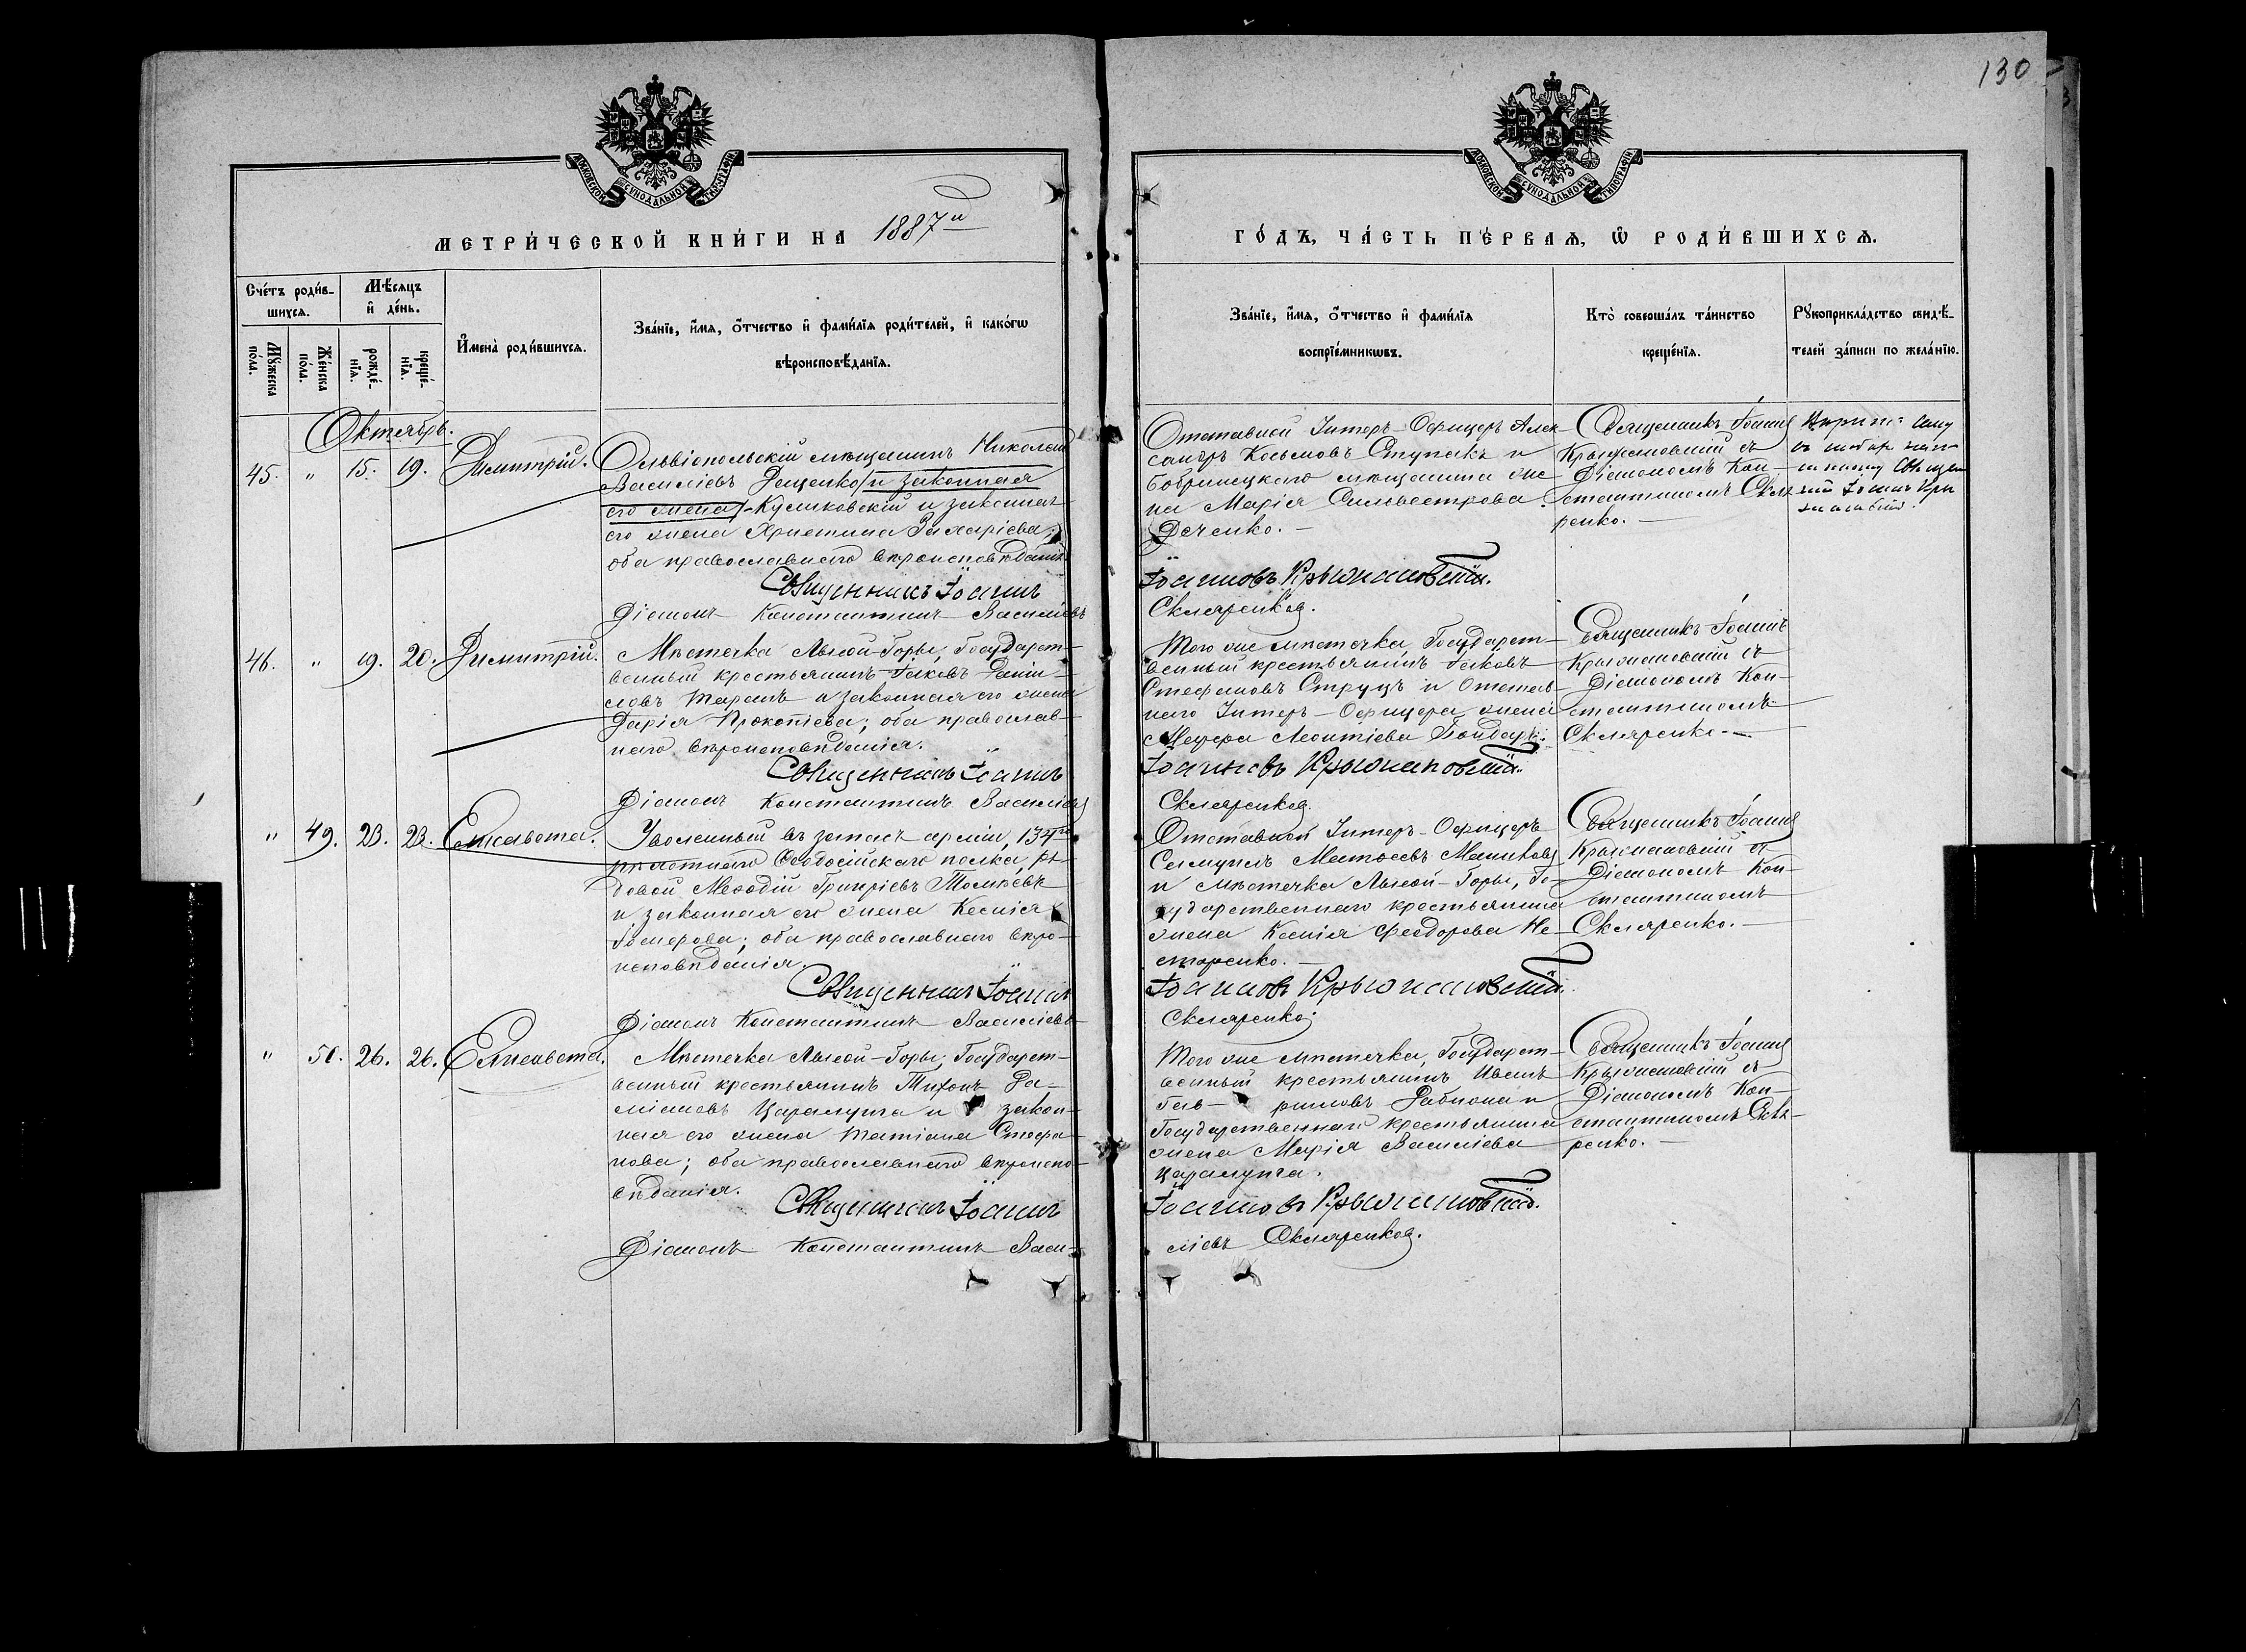 130
МОСКОВСКОЙ СУНОДАЛЬНОЙ ТИПОГРАФІИ
МОСКОВСКОЙ СУНОДАЛЬНОЙ ТИПОГРАФІИ
МЕТРИ́ЧЕСКОЙ КНИ́ГИ НА 1887й
ГО́ДЪ, ЧА́СТЬ ПЕ́РВАѦ, Ѡ҆ РОДИ́ВШИХСѦ.
Сче́тъ роди́в-
шихсѧ.
Мꙋ́жеска
по́ла.
Же́нска
по́ла.
Мѣ́сѧцъ
и҆ де́нь.
рожде́-
нїѧ.
креще́-
нїѧ.
И҆мена̀ роди́вшихсѧ.
Зва́нїе, и҆́мѧ, ѻ҆́тчество и҆ фами́лїѧ роди́телей, и҆ како́гѡ
вѣроисповѣ́данїѧ.
Зва́нїе, и҆́мѧ, ѻ҆́тчество и҆ фами́лїѧ
воспрїе́мникѡвъ.
Кто̀ соверша́лъ та́инство
креще́нїѧ.
Рꙋкоприкла́дство свидѣ́-
телей за́писи по жела́нїю.
Октябрь.
45. " 15. 19. Димитрій.
Ольвіопольскій мѣщанинъ Николай
Василіевъ Доценко (и законная
его жена) Куликовскій и законная
его жена Христина Захаріева;
оба православнаго вѣроисповѣданія
Священникъ Іоаннъ
Діаконъ Константинъ Василіевъ
Отставной Унтеръ-Офицеръ Алек
сандръ Косьмовъ Ступакъ и
бобринецкаго мѣщанина же
на Марія Сильвестрова
Дченко.
Іоанновъ Крыжановскій.
Скляренко.
Священникъ Іоаннъ
Крыжановскій съ
Діакономъ Кон-
стантиномъ Скля
ренко.
46. " 19. 20. Димитрій.
Мѣстечка Лысой-Горы, Государст-
венный крестьянинъ Іаковъ Дани-
ловъ Таранъ и законная его жена
Дарія Прокопіева; оба православ-
наго вѣроисповѣданія.
Священникъ Іоаннъ
Діаконъ Константинъ Василіевъ
Того же мѣстечка, Государст-
венный крестьянинъ Іаковъ
Стефановъ Струцъ и Отстав-
наго Унтеръ-Офицера жена
Леонтіева Бондарь.
Іоанновъ Крыжановскій.
Скляренко.
Священникъ Іоаннъ
Крыжановскій съ
Діакономъ Кон-
стантиномъ
Скляренко.
" 49. 23. 23. Елисавета.
Уволенный въ запасъ арміи, 134го
пѣхотнаго Ѳеодосійскаго полка, ря-
довой Меѳодій Григоріевъ
и законная его жена Ксенія
оба православнаго вѣро-
исповѣданія.
Священникъ Іоаннъ
Діаконъ Константинъ Василіевъ
Отставной Унтеръ-Офицеръ
Самуилъ Матѳеевъ Маликовъ
и мѣстечка Лысой-Горы, Го-
сударственнаго крестьянина
жена Ксенія Ѳеодорова Не-
сторенко.
Іоанновъ Крыжановскій.
Скляренко
Священникъ Іоаннъ
Крыжановскій съ
Діакономъ Кон-
стантиномъ
Скляренко.
" 50. 26. 26. Елисавета.
Мѣстечка Лысой-Горы, Государст-
венный крестьянинъ Тихонъ Да-
міановъ Царалунга и закон-
ная его жена Татіана Стефа-
нова; оба православнаго вѣроиспо-
вѣданія.
Священникъ Іоаннъ
Діаконъ Константинъ Васи-
Того же мѣстечка, Государст-
венный крестьянинъ Иванъ
Гав- риловъ и
Государственнаго крестьянина
жена Марія Василіева
Царалунга.
Іоанновъ Крыжановскій.
ліевъ Скляренко.
Священникъ Іоаннъ
Крыжановскій съ
Діакономъ Кон-
стантиномъ Скля-
ренко.